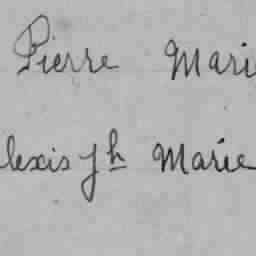 Pierre Mari
lexis Jh Marie